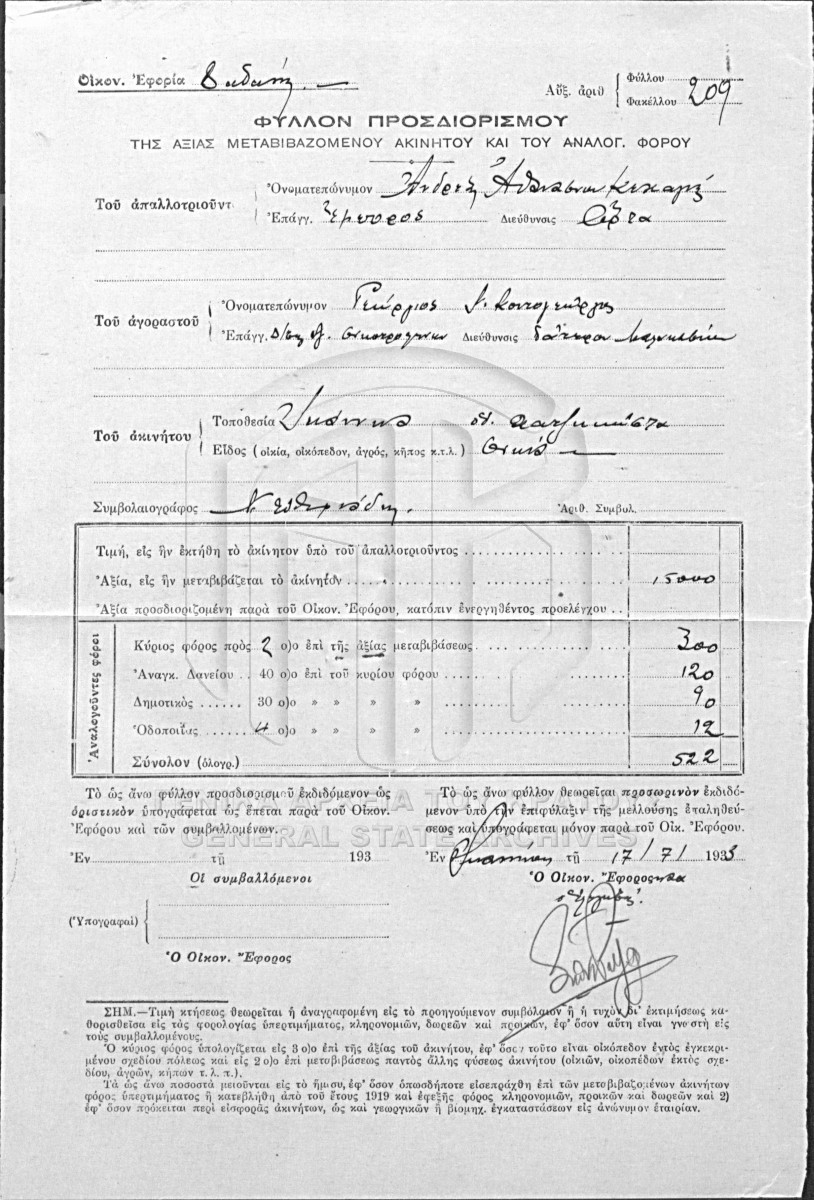 Οἰκον. Ἐφορία
Αὔξ. ἀριθ { Φύλλου
Φακέλλου 209
ΦΥΛΛΟΝ ΠΡΟΣΔΙΟΡΙΣΜΟΥ
ΤΗΣ ΑΞΙΑΣ ΜΕΤΑΒΙΒΑΖΟΜΕΝΟΥ ΑΚΙΝΗΤΟΥ ΚΑΙ ΤΟΥ ΑΝΑΛΟΓ. ΦΟΡΟΥ
Τοῦ ἀπαλλοτριοῦντ
Ὀνοματεπώνυμον Ἀνδρέας Ἀθανασίου
Ἐπάγγ. Ἔμπορος Διεύθυνσις
Τοῦ ἀγοραστοῦ
Ὀνοματεπώνυμον Γεώργιος
Ἐπάγγ. Διεύθυνσις
Τοῦ ἀκινήτου
Τοποθεσία
Εἶδος (οἰκία, οἰκόπεδον, ἀγρός, κῆπος κ.τ.λ.)
Συμβολαιογράφος Ἀριθ. Συμβολ.
Τιμή, εἰς ἣν ἐκτήθη τὸ ἀκίνητον ὑπὸ τοῦ ἀπαλλοτριοῦντος
Ἀξία, εἰς ἣν μεταβιβάζεται τὸ ἀκίνητον 15000
Ἀξία προσδιοριζομένη παρὰ τοῦ Οἰκον. Ἐφόρου, κατόπιν ἐνεργηθέντος προελέγχου
Ἀναλογοῦντες φόροι
Κύριος φόρος πρὸς 2 ο)ο ἐπὶ τῆς ἀξίας μεταβιβάσεως 300
Ἀναγκ. Δανείου 40 ο)ο ἐπὶ τοῦ κυρίου φόρου 120
Δημοτικὸς 30 ο)ο » » » » 90
Ὁδοποιΐας 4 ο)ο » » » » 12
Σύνολον (ὁλογρ.) 522
Τὸ ὡς ἄνω φύλλον προσδιορισμοῦ ἐκδιδόμενον ὡς
ὁριστικὸν ὑπογράφεται ὡς ἕπεται παρὰ τοῦ Οἰκον.
Ἐφόρου καὶ τῶν συμβαλλομένων.
Ἐν τῇ 193
Οἱ συμβαλλόμενοι
(Ὑπογραφαὶ)
Ὁ Οἰκον. Ἔφορος
Τὸ ὡς ἄνω φύλλον θεωρεῖται προσωρινὸν ἐκδιδό-
μενον ὑπὸ τὴν ἐπιφύλαξιν τῆς μελλούσης ἐπαληθεύ-
σεως καὶ ὑπογράφεται μόνον παρὰ τοῦ Οἰκ. Ἐφόρου.
Ἐν τῇ 17/7/1933
Ὁ Οἰκον. Ἔφορος
ΓΕΝΙΚΑ ΑΡΧΕΙΑ ΤΟΥ ΚΡΑΤΟΥΣ
GENERAL STATE ARCHIVES
ΣΗΜ.—Τιμὴ κτήσεως θεωρεῖται ἡ ἀναγραφομένη εἰς τὸ προηγούμενον συμβόλαιον ἢ ἡ τυχὸν δι' ἐκτιμήσεως κα-
θορισθεῖσα εἰς τὰς φορολογίας ὑπερτιμήματος, κληρονομιῶν, δωρεῶν καὶ προικῶν, ἐφ' ὅσον αὕτη εἶναι γνωστὴ εἰς
τοὺς συμβαλλομένους.
Ὁ κύριος φόρος ὑπολογίζεται εἰς 3 ο)ο ἐπὶ τῆς ἀξίας τοῦ ἀκινήτου, ἐφ' ὅσον τοῦτο εἶναι οἰκόπεδον ἐντὸς ἐγκεκρι-
μένου σχεδίου πόλεως καὶ εἰς 2 ο)ο ἐπὶ μεταβιβάσεως παντὸς ἄλλης φύσεως ἀκινήτου (οἰκιῶν, οἰκοπέδων ἐκτὸς σχε-
δίου, ἀγρῶν, κήπων τ. λ. π.).
Τὰ ὡς ἄνω ποσοστὰ μειοῦνται εἰς τὸ ἥμισυ, ἐφ' ὅσον ὁπωσδήποτε εἰσεπράχθη ἐπὶ τῶν μεταβιβαζομένων ἀκινήτων
φόρος ὑπερτιμήματος ἢ κατεβλήθη ἀπὸ τοῦ ἔτους 1919 καὶ ἐφεξῆς φόρος κληρονομιῶν, προικῶν καὶ δωρεῶν καὶ 2)
ἐφ' ὅσον πρόκειται περὶ εἰσφορᾶς ἀκινήτων, ὡς καὶ γεωργικῶν ἢ βιομηχ. ἐγκαταστάσεων εἰς ἀνώνυμον ἑταιρίαν.